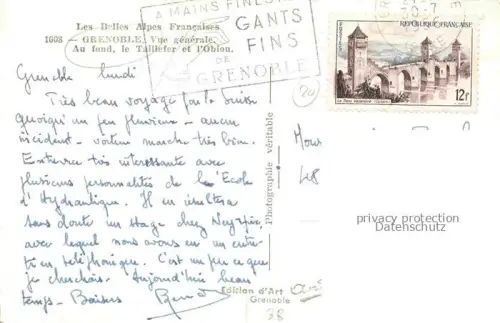 Les Belles Alpes Françaises
1003 - GRENOBLE. Vue générale.
Au fond, le Taillefer et l'Obiou.
A MAINS FINES
GANTS
FINS
DE
GRENOBLE
RÉPUBLIQUE FRANÇAISE
12F
Grenoble lundi
Très beau voyage par la Suisse
quoiqu'un peu pluvieux - aucun
incident - voiture marche très bien.
Entrevue très intéressante avec
plusieurs personnalités de l'Ecole
d'Hydraulique. Il en résultera
sans doute un stage chez Neyrpic,
avec lequel nous avons eu un entre-
tien téléphonique. C'est un peu ce que
je cherchais. Aujourd'hui beau
temps - Baisers
Photographie véritable
Mons
48
privacy protection
Datenschutz
Edition d'Art
Grenoble
38